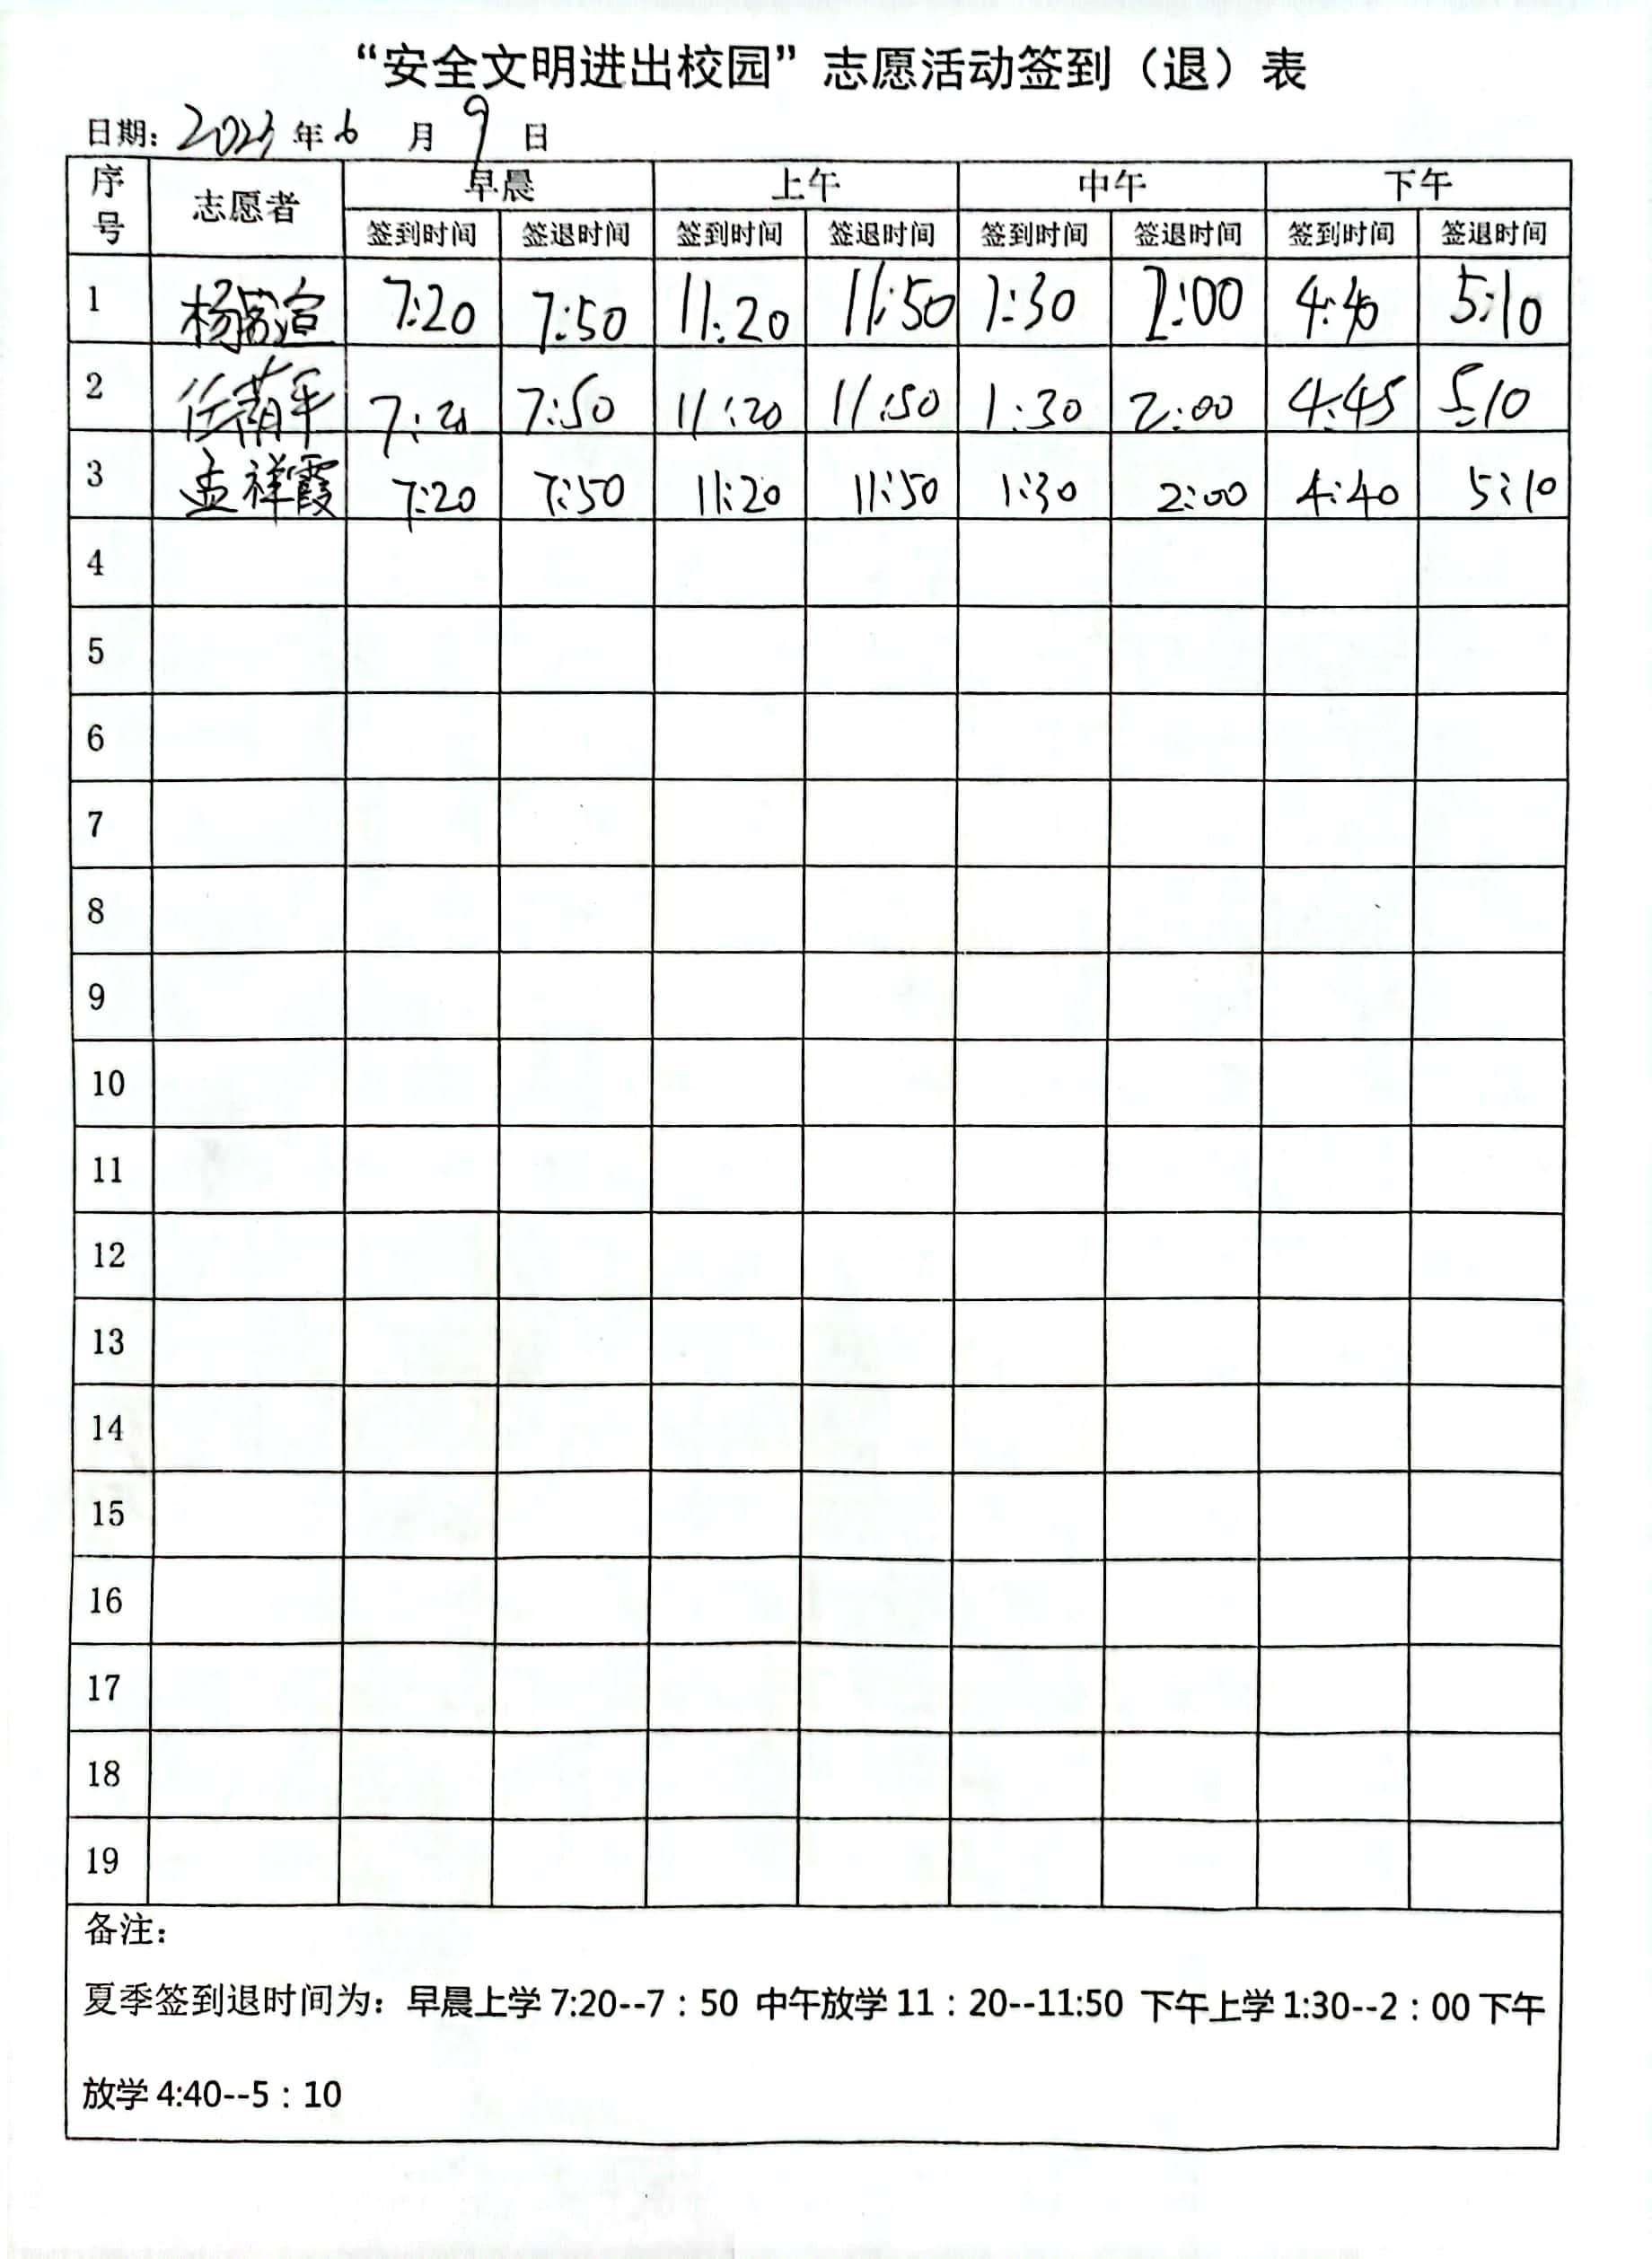 “安全文明进出校园”志愿活动签到（退）表
日期: 2023 年 6 月 9 日
序号 志愿者 早晨 上午 中午 下午
签到时间 签退时间 签到时间 签退时间 签到时间 签退时间 签到时间 签退时间
1 杨宣 7:20 7:50 11:20 11:50 1:30 2:00 4:40 5:10
2 任平 7:20 7:50 11:20 11:50 1:30 2:00 4:45 5:10
3 孟祥霞 7:20 7:50 11:20 11:50 1:30 2:00 4:40 5:10
4
5
6
7
8
9
10
11
12
13
14
15
16
17
18
19
备注:
夏季签到退时间为: 早晨上学 7:20--7：50 中午放学 11：20--11:50 下午上学 1:30--2：00 下午
放学 4:40--5：10